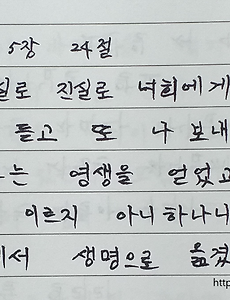 5장 24절
실로 진실로 너희에게
듣고 또 나 보내
는 영생을 얻었고
이르지 아니하나니
서 생명으로 옮겼
http